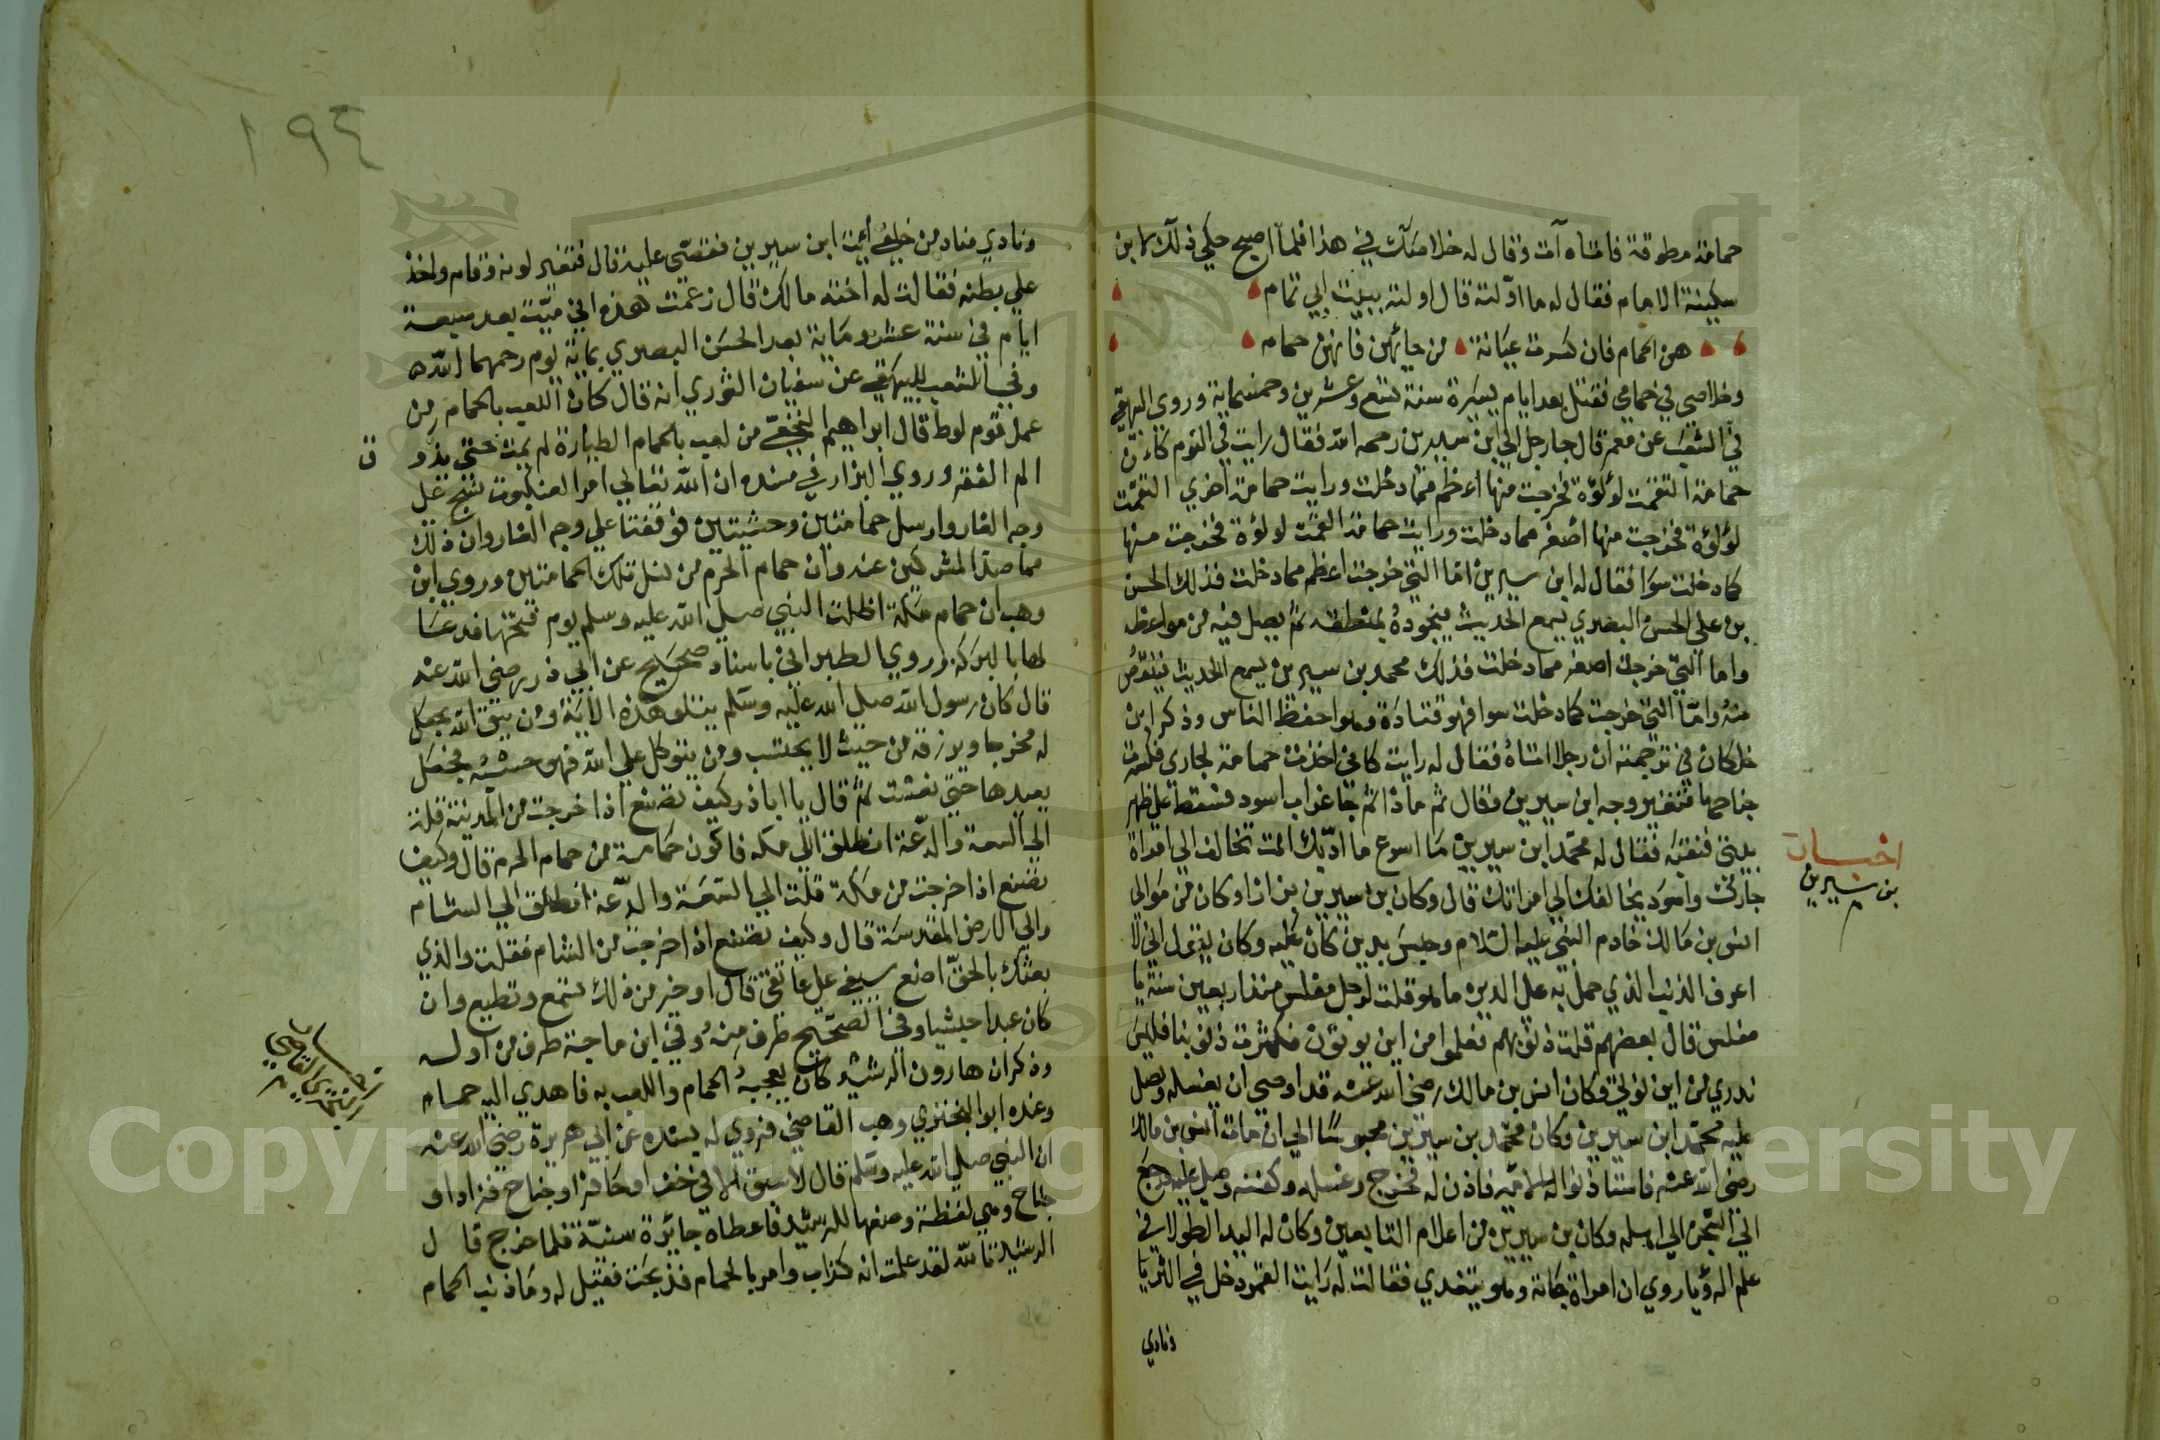 حمامة مطوقة فاتاه آت وقال له خلاصك في هذا فلما اصبح حكي ذلك لابن
سكينة الامام فقال له ما اوّلته قال اولته ببيت ابي تمام
هن الحمام فان كسرت عيافة من حائهن فانهن حمام
وخلاصي في حمامي فقتل بعد ايام يسيرة سنة تسع وعشرين وخمسماية وروي البيهقي
في الشعب عن معمر قال جا رجل الي ابن سيرين رحمه الله فقال رايت في النوم كان
حمامة التقمت لؤلؤة فخرجت منها اعظم مما دخلت ورايت حمامة اخري التقمت
لؤلؤة فخرجت منها اصغر مما دخلت ورايت حمامة القمت لولؤة فخرجت منها
كما دخلت سوا فقال له ابن سيرين اما التي خرجت اعظم مما دخلت فذلك الحسن
بن علي الحسن البصري يسمع الحديث فيجوده بمنطقه ثم يصل فيه من مواعظه
واما التي خرجت اصغر مما دخلت فذلك محمد بن سيرين يسمع الحديث فينقص
منه واما التي خرجت كما دخلت سوا فهو قتادة وهو احفظ الناس وذكر ابن
خلكان في ترجمته ان رجلا اتاه فقال له رايت كاني اخذت حمامة لجاري فكسرت
جناحها فتغير وجه ابن سيرين وقال ثم ماذا قال ثم جا غراب اسود فسقط علي ظهر
بيتي فنقبه فقال له محمد ابن سيرين ما اسرع ما ادبك انت تخالف الي امراة
جارك واسود يخالفك الي امراتك قال وكان بن سيرين بزازا وكان من موالي
انس بن مالك خادم النبي عليه السلام وحبس بدين كان عليه وكان يقول اني لا
اعرف الذنب الذي حمل به علي الدين ما هو قلت لرجل مفلس منذ اربعين سنة يا
مفلس قال بعضهم قلت ذنوبهم فعلموا من اين يوتون وكثرت ذنوبنا فليس
ندري من اين نوتي وكان انس بن مالك رضي الله عنه قد اوصي ان يغسله ويصلي
عليه محمد ابن سيرين وكان محمد بن سيرين محبوسًا الي ان مات انس بن مالك
رضي الله عنه فاستاذنوا له الامير فاذن له فخرج وغسله وكفنه وصلي عليه ورجع
الي السجن الي اهله وكان بن سيرين من اعلام التابعين وكان له اليد الطولا في
علم الرؤيا روي ان امراة جاته وهو يتغدي فقالت له رايت القمر دخل في الثريا
ونادي
اخبار
بن سيرين
١٩٤
ونادي مناد من خلفي أيت ابن سيرين فقصّي عليه قال فتغير لونه وقام واخذ
علي بطنه فقالت له اخته مالك قال زعمت هذه اني ميّت بعد سبعة
ايام في سنة عشر وماية بعد الحسن البصري بماية يوم رحمهما الله
وفي الشعب للبيهقي عن سفيان الثوري انه قال كان اللعب بالحمام من
عمل قوم لوط قال ابراهيم النخعي من لعب بالحمام الطيارة لم يمت حتي يذوق
الم الفقر وروي البزار في مسنده ان الله تعالي امر العنكبوت فنسج علي
وجه الغار وارسل حمامتين وحشيتين فوقفتا علي وجه الغار وان ذلك
مما صد المشركين عنه وان حمام الحرم من نسل تلك الحمامتين وروي ابن
وهب ان حمام مكة اظلت النبي صلي الله عليه وسلم يوم فتحها فدعا
لها بالبركة وروي الطبراني باسناد صحيح عن ابي ذر رضي الله عنه
قال كان رسول الله صلي الله عليه وسلم يتلو هذه الاية ومن يتق الله يجعل
له مخرجا ويرزقه من حيث لا يحتسب ومن يتوكل علي الله فهو حسبه فجعل
يعيدها حتي نعست ثم قال يا اباذر كيف تصنع اذا اخرجت من المدينة قلت
الي السعة والدعة انطلق الي مكه فاكون حمامة من حمام الحرم قال وكيف
تصنع اذا خرجت من مكة قلت الي السعة والدّعة انطلق الي الشام
والي الارض المقدسة قال وكيف تصنع اذا خرجت من الشام فقلت والذي
بعثك بالحق اضع سيفي علي عاتقي قال او خير من ذلك تسمع وتطيع وان
كان عبدا حبشيا وفي الصحيح طرف منه وفي ابن ماجة طرف من اوله
وذكر ان هارون الرشيد كان يعجبه الحمام واللعب به فاهدي اليه حمام
وعنده ابو البختري وهب القاضي فروي له بسنده عن ابي هريرة رضي الله عنه
ان النبي صلي الله عليه وسلم قال لا سبق الا في خف او حافر او جناح فزاد او
جناح وهي لفظة وضعها للرشيد فاعطاه جائزة سنيّة فلما خرج قال
الرشيد تالله لقد علمت انه كذاب وامر بالحمام فذبحت فقيل له وما ذنب الحمام